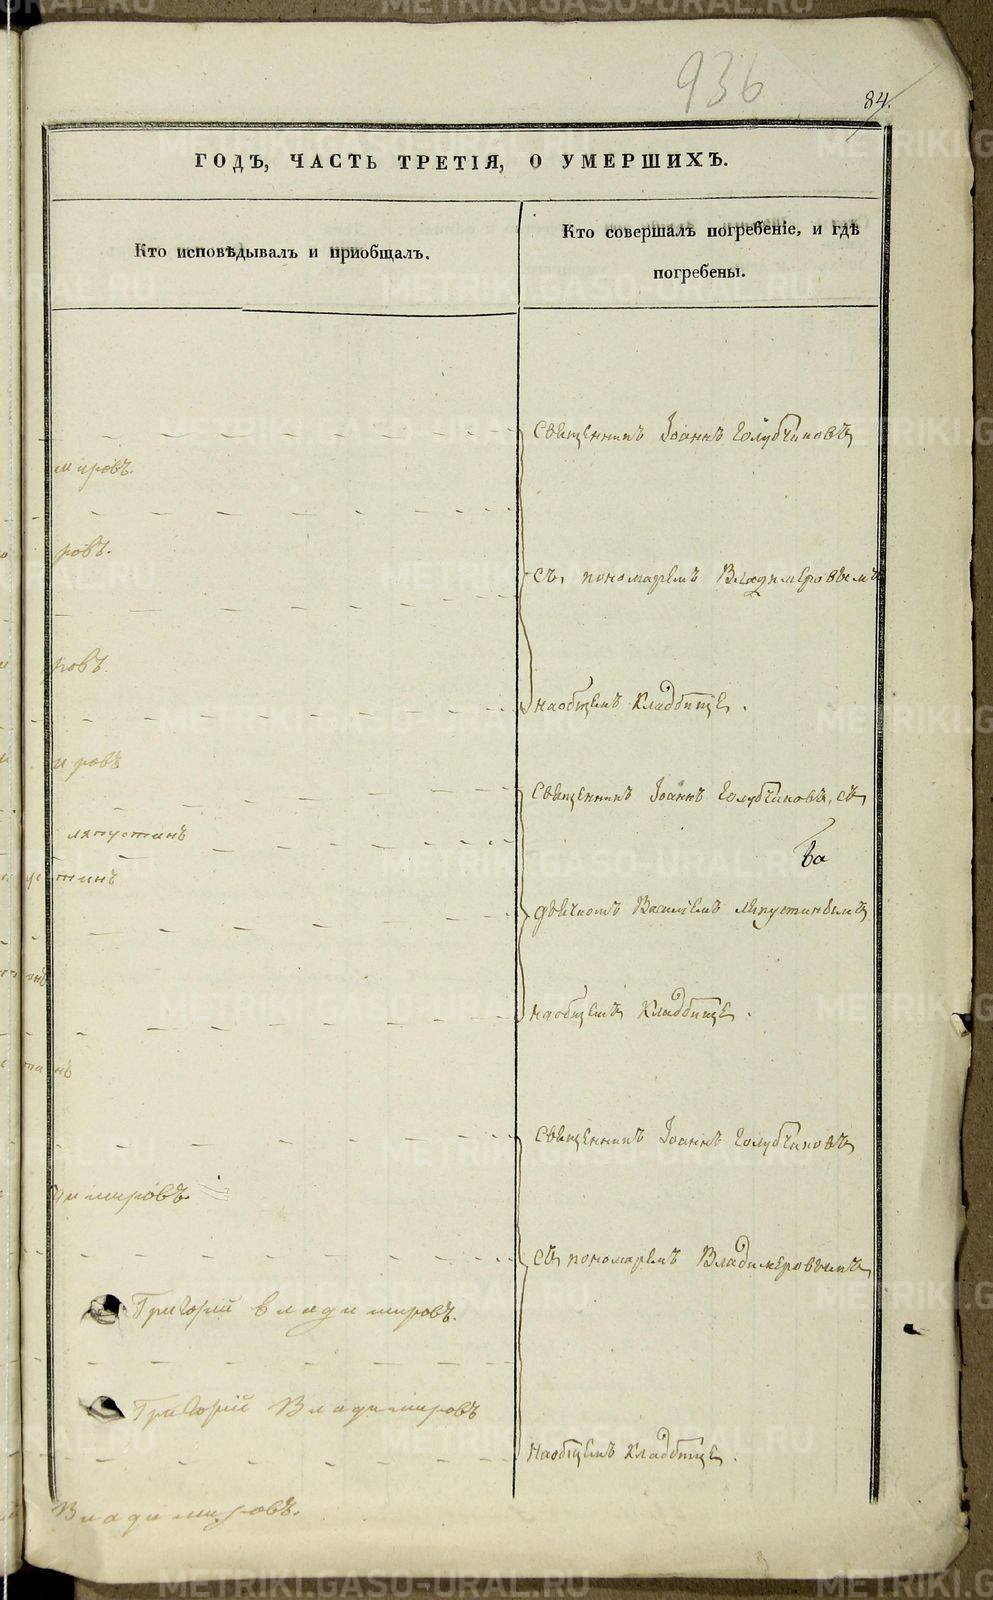 936
84.
ГОДЪ, ЧАСТЬ ТРЕТІЯ, О УМЕРШИХЪ.
Кто исповѣдывалъ и пріобщалъ.
Кто совершалъ погребеніе, и гдѣ
погребены.
Священникъ Іоаннъ Голубчиковъ
мировъ.
ровъ.
съ пономаремъ Владимеровымъ
ровъ.
на общемъ кладбище.
ировъ
Священникъ Іоаннъ Голубчиковъ, съ
ляпустинъ
ва
тинъ
дьячкомъ Василіемъ Ляпустинымъ
на общемъ кладбище.
Священникъ Іоаннъ Голубчиковъ
димировъ.
съ пономаремъ Владимеровымъ
Григорій Владимировъ.
Григорій Владимировъ
на общемъ кладбище.
Владимировъ.
METRIKI.GASO-URAL.RU